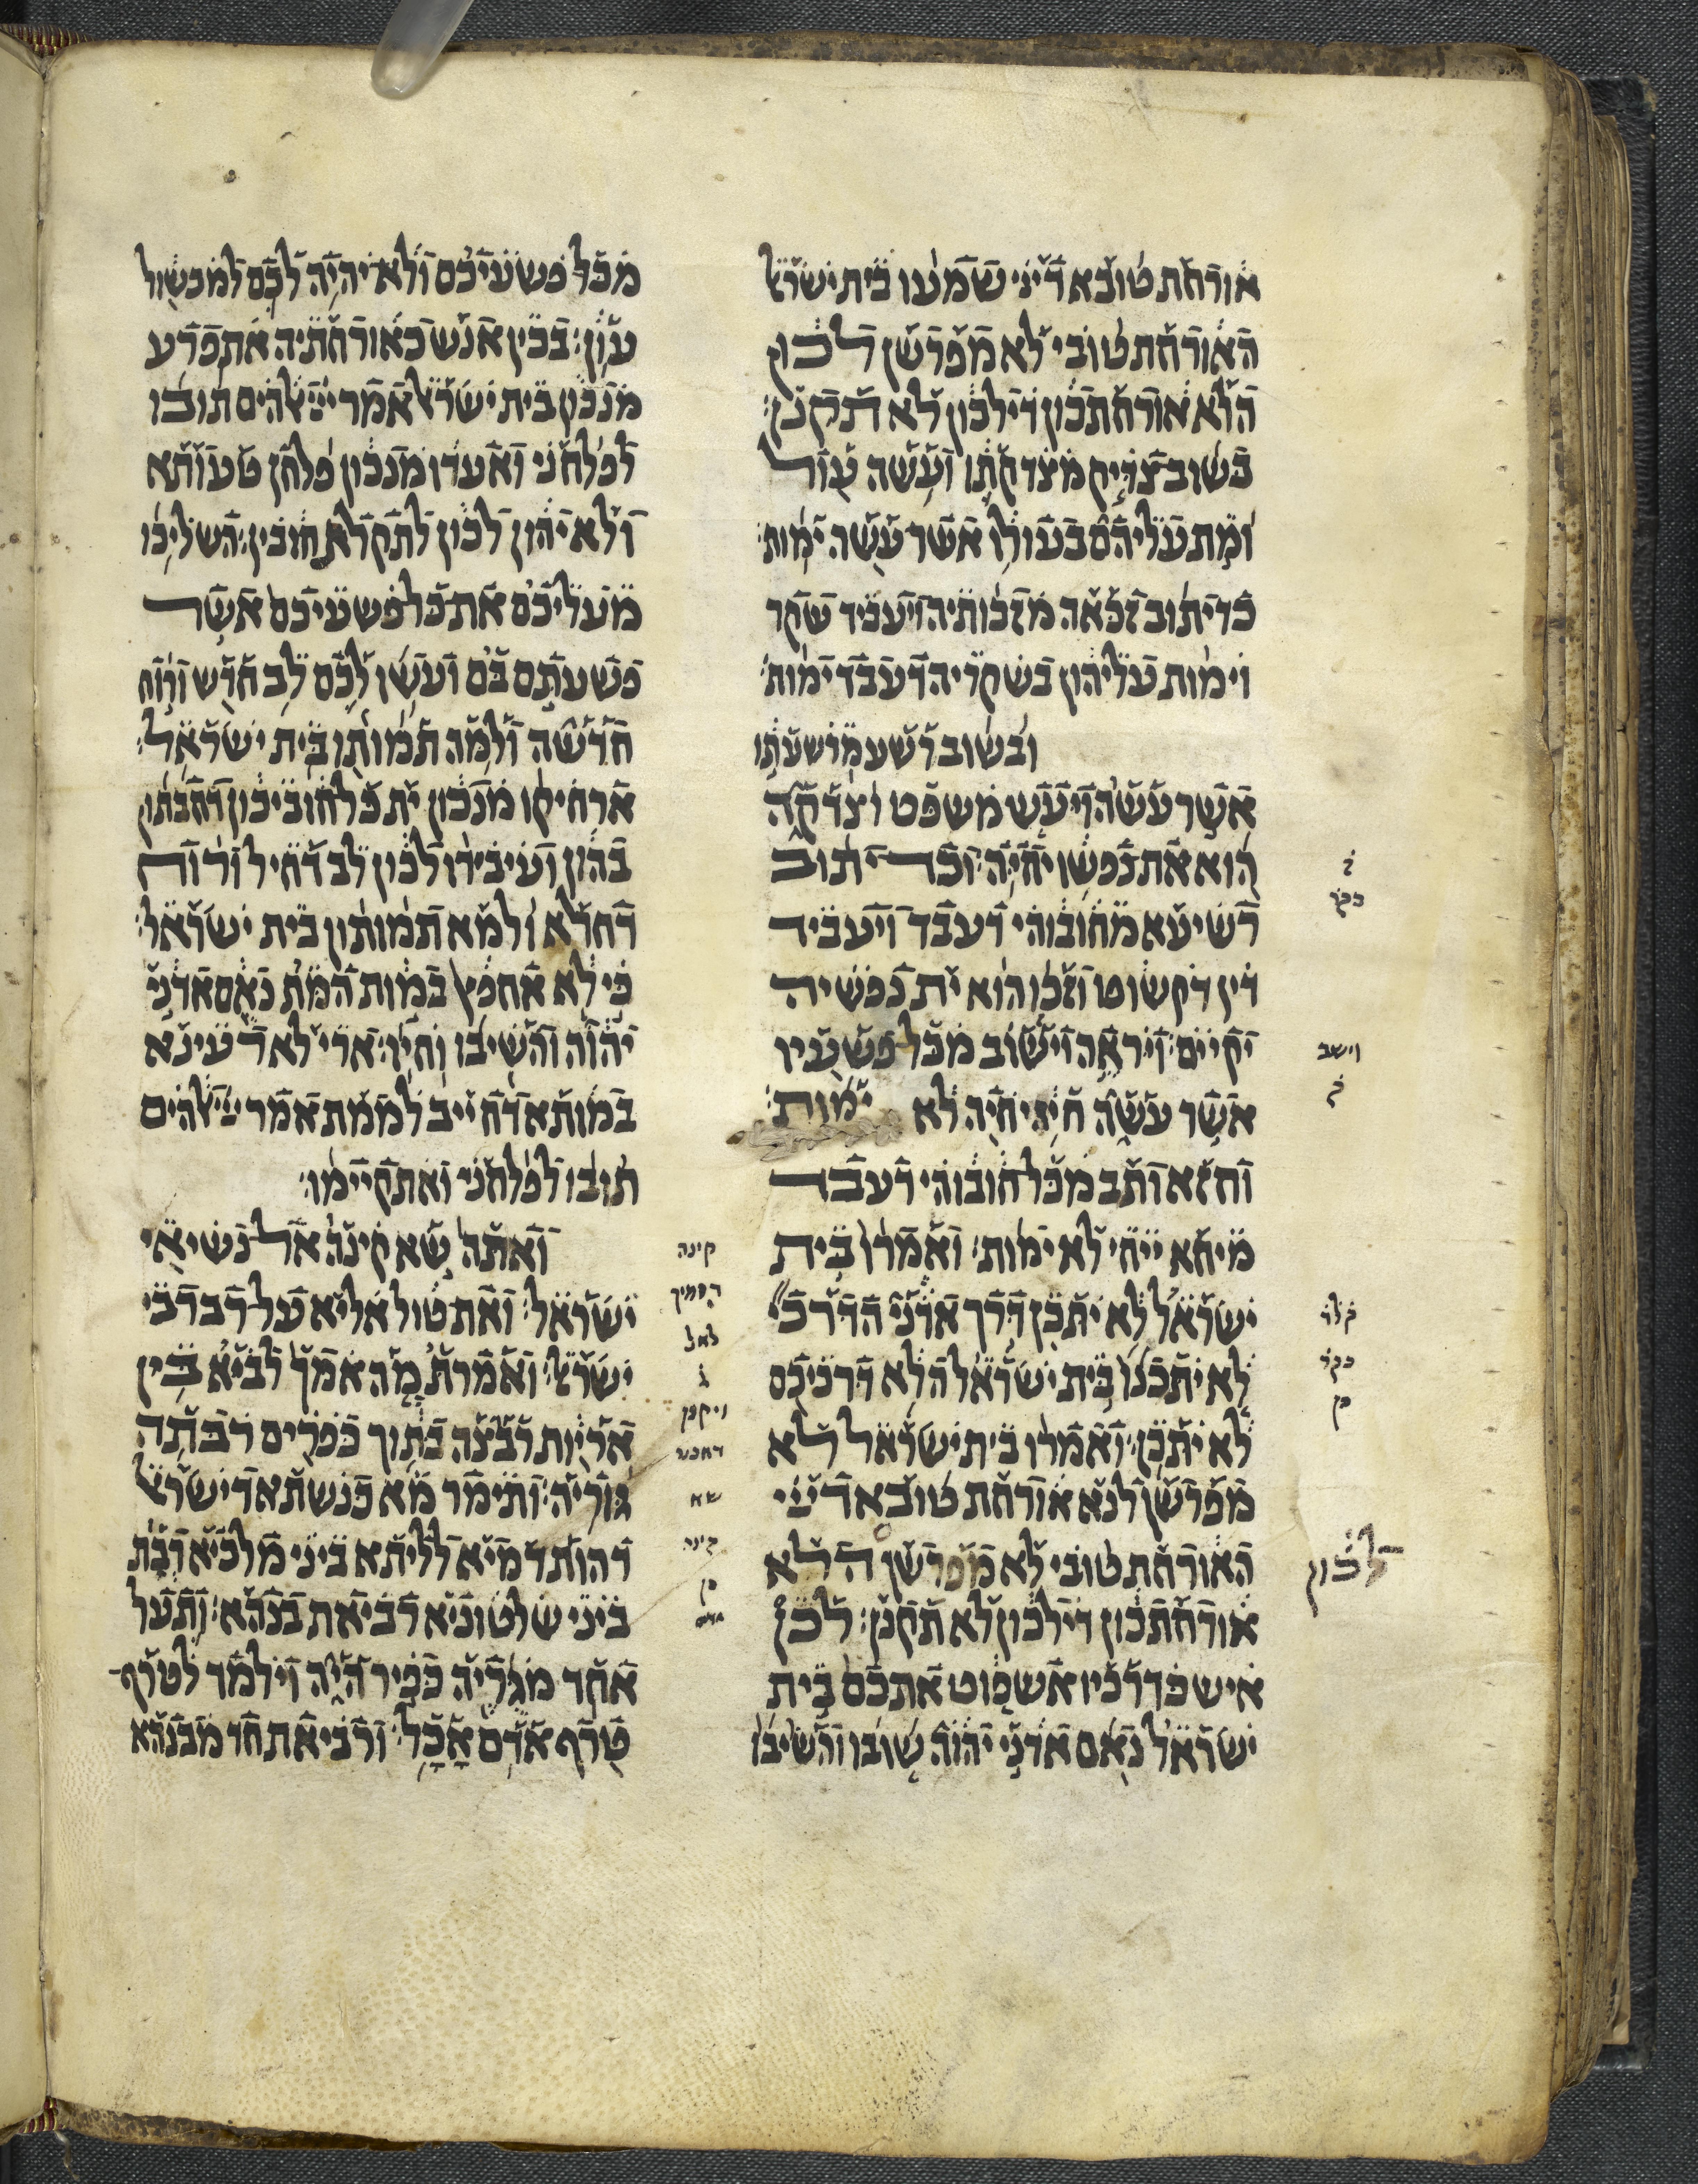 אורחת טובא דייי שמעו בית ישרﭏ
האורחת טובי לא מפרשן לכון
הלא אורחתכון דילכון לא תקנן׃
בשוב צדיק מצדקתו ועשה עול
ומת עליהם בעולו אשר עשה ימות׃
כד יתוב זכאה מזכותיה ויעביד שקר
וימות עליהון בשקריה דעבד ימות׃
ובשוב רשע מרשעתו
אשר עשה ויעש משפט וצדקה
הוא את נפשו יחיה׃ וכד יתוב
רשיעא מחובוהי דעבד ויעביד
דין דקשוט וזכו הוא ית נפשיה
יקיים׃ ויראה וישוב מכל פשעיו
אשר עשה חיה יחיה לא ימות׃
וחזא ותב מכל חובוהי דעבד
מיחא ייחי לא ימות׃ ואמרו בית
ישראל לא יתכן דרך אדני הדרכי
לא יתכנו בית ישראל הלא דרכיכם
לא יתכן׃ ואמרו בית ישראל לא
מפרשן לנא אורחת טובא דייי
האורחת טובי לא מפרשן הלא
אורחתכון דילכון לא תקנן׃ לכן
איש כדרכיו אשפוט אתכם בית
ישראל נאם אדני יהוה שובו והשיבו
וישב
לכון
מכל פשעיכם ולא יהיה לכם למכשול
עון׃ בכין אנש כאורחתיה אתפרע
מנכון בית ישרﭏ אמר ייי ﭏהים תובו
לפלחני ואעדו מנכון פלחן טעותא
ולא יהון לכון לתקלא חובין׃ השליכו
מעליכם את כל פשעיכם אשר
פשעתם בם ועשו לכם לב חדש ורוח
חדשה ולמה תמותו בית ישראל׃
ארחיקו מנכון ית כל חוביכון דחבתון
בהון ועיבידו לכון לב דחיל ורוח
דחלא ולמא תמותון בית ישראל׃
כי לא אחפץ במות המת נאם אדני
יהוה והשיבו וחיו׃ ארי לא רעינא
במותא דחייב לממת אמר ייי ﭏהים
תובו לפלחני ואתקיימו׃
ואתה שא קינה אל נשיאי
ישראל׃ ואת טול אליא על רברבי
ישרﭏ׃ ואמרת מה אמך לביא בין
אריות רבצה בתוך כפרים רבתה
גוריה׃ ותימר מא כנשתא דישרﭏ
דהות דמיא לליתא ביני מלכיא רבת
ביני שלטוניא רביאת בנהא׃ ותעל
אחד מגריה כפיר היה וילמד לטרף
טרף אדם אכל׃ ורביאת חד מבנהא
קינה